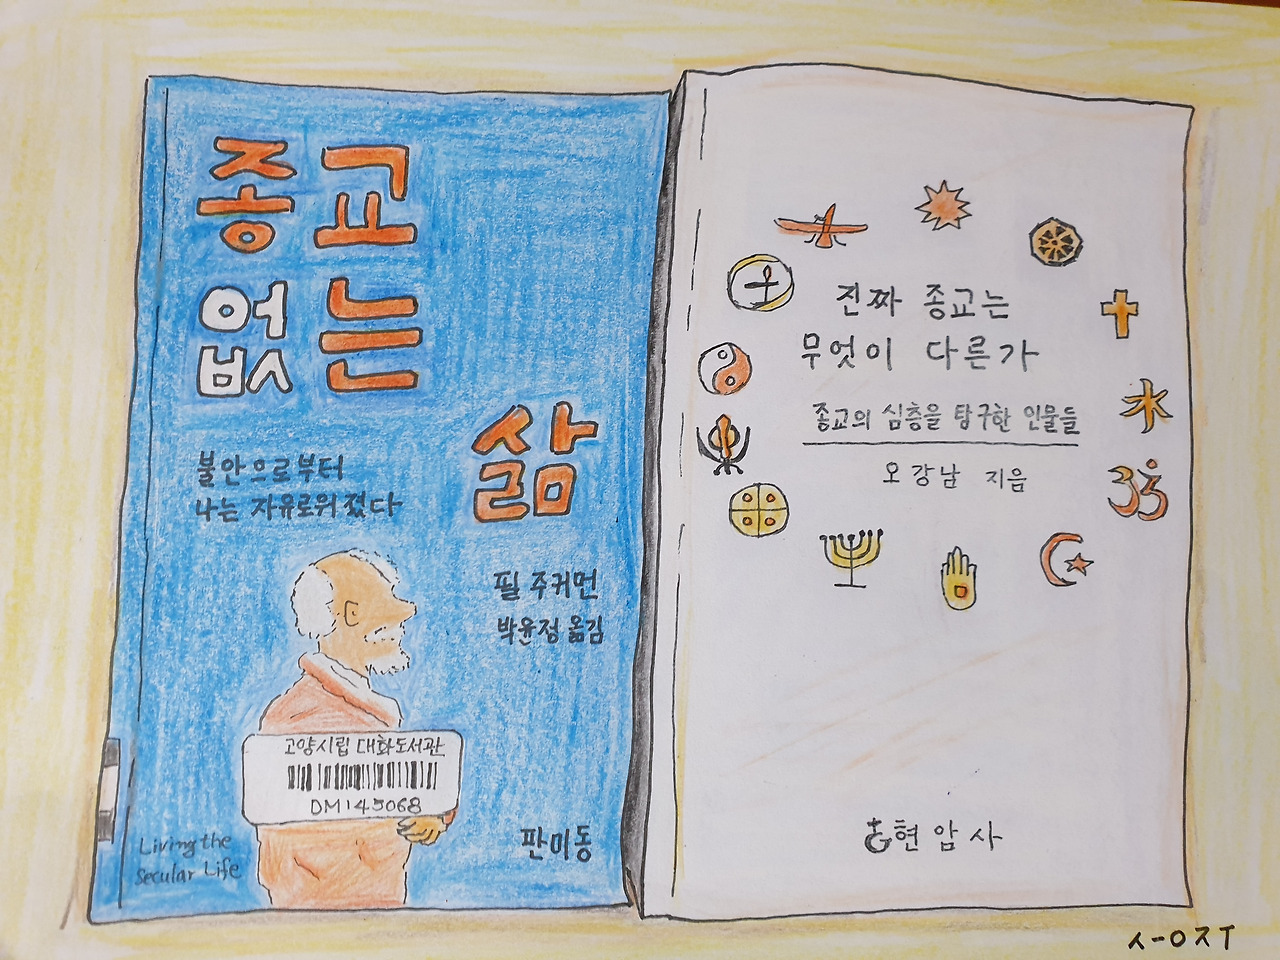 종교
없는
삶
불안으로부터
나는 자유로워졌다
필 주커먼
박윤정 옮김
고양시립 대화도서관
DM145068
Living the
Secular Life
판미동
진짜 종교는
무엇이 다른가
종교의 심층을 탐구한 인물들
오강남 지음
현암사